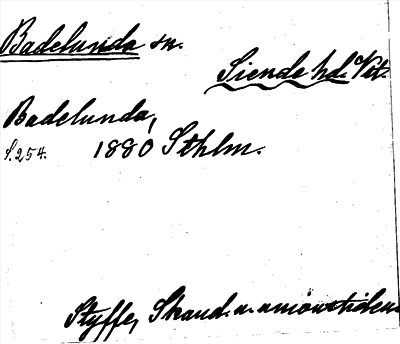 Badelunda sn.
Siende hd. Vst.
Badelunda,
S. 254. 1880 Sthlm.
Styffe, Skand. u. unionstiden